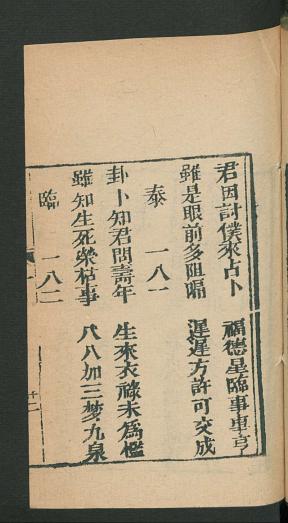 君因討僕來占卜　福德星臨事車亨
雖是眼前多阻隔　遲遲方許可交成
泰　一八一
卦卜知君問壽年　生來衣祿未為慳
雖知生死榮枯事　八八加三梦九泉
臨　一八二
十二